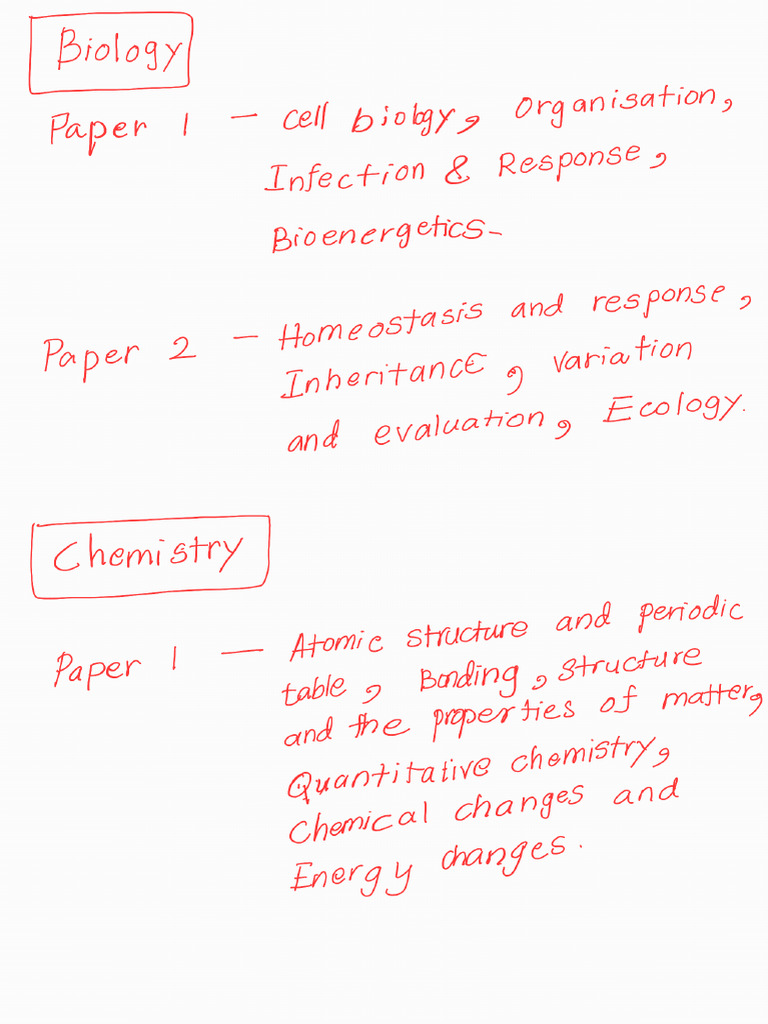 Biology
Paper 1 - cell biology, Organisation,
Infection & Response,
Bioenergetics-
Paper 2 - Homeostasis and response,
Inheritance, variation
and evaluation, Ecology.
Chemistry
Paper 1 - Atomic structure and periodic
table, Bonding, structure
and the properties of matter,
Quantitative chemistry,
Chemical changes and
Energy changes.